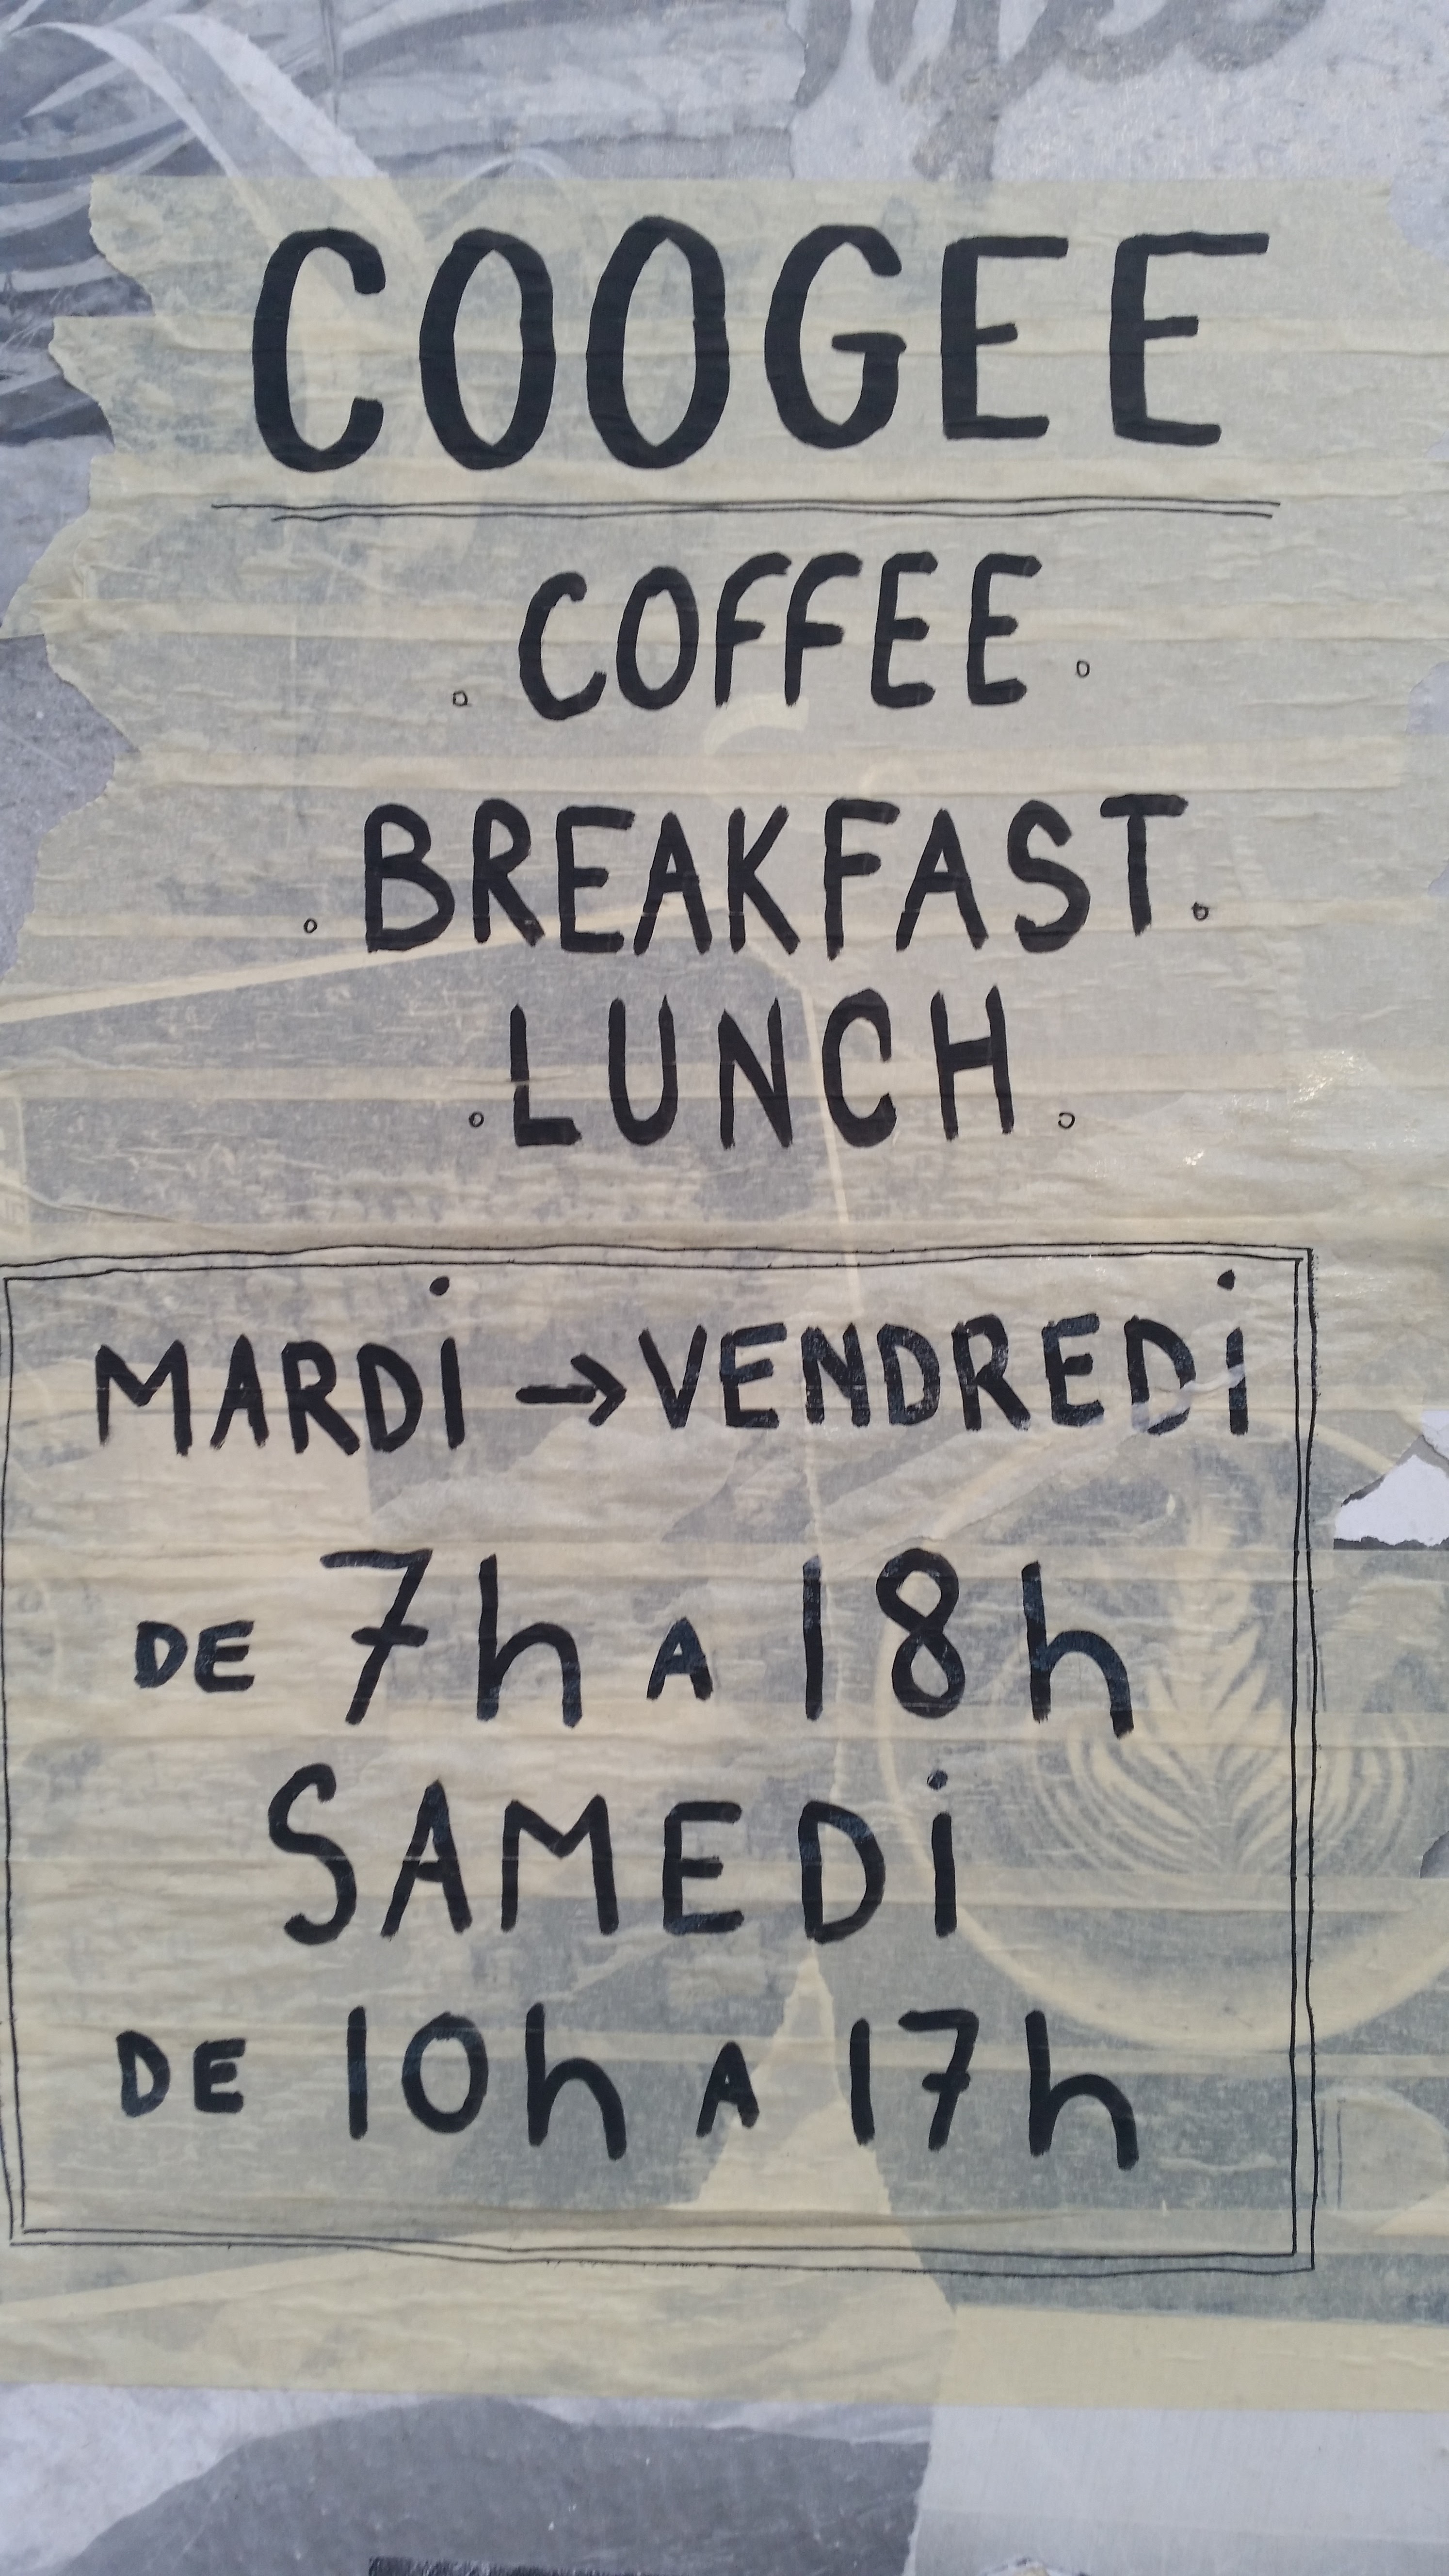 COOGEE
COFFEE
BREAKFAST
LUNCH
MARDi → VENDREDi
DE 7h A 18h
SAMEDi
DE 10h A 17h